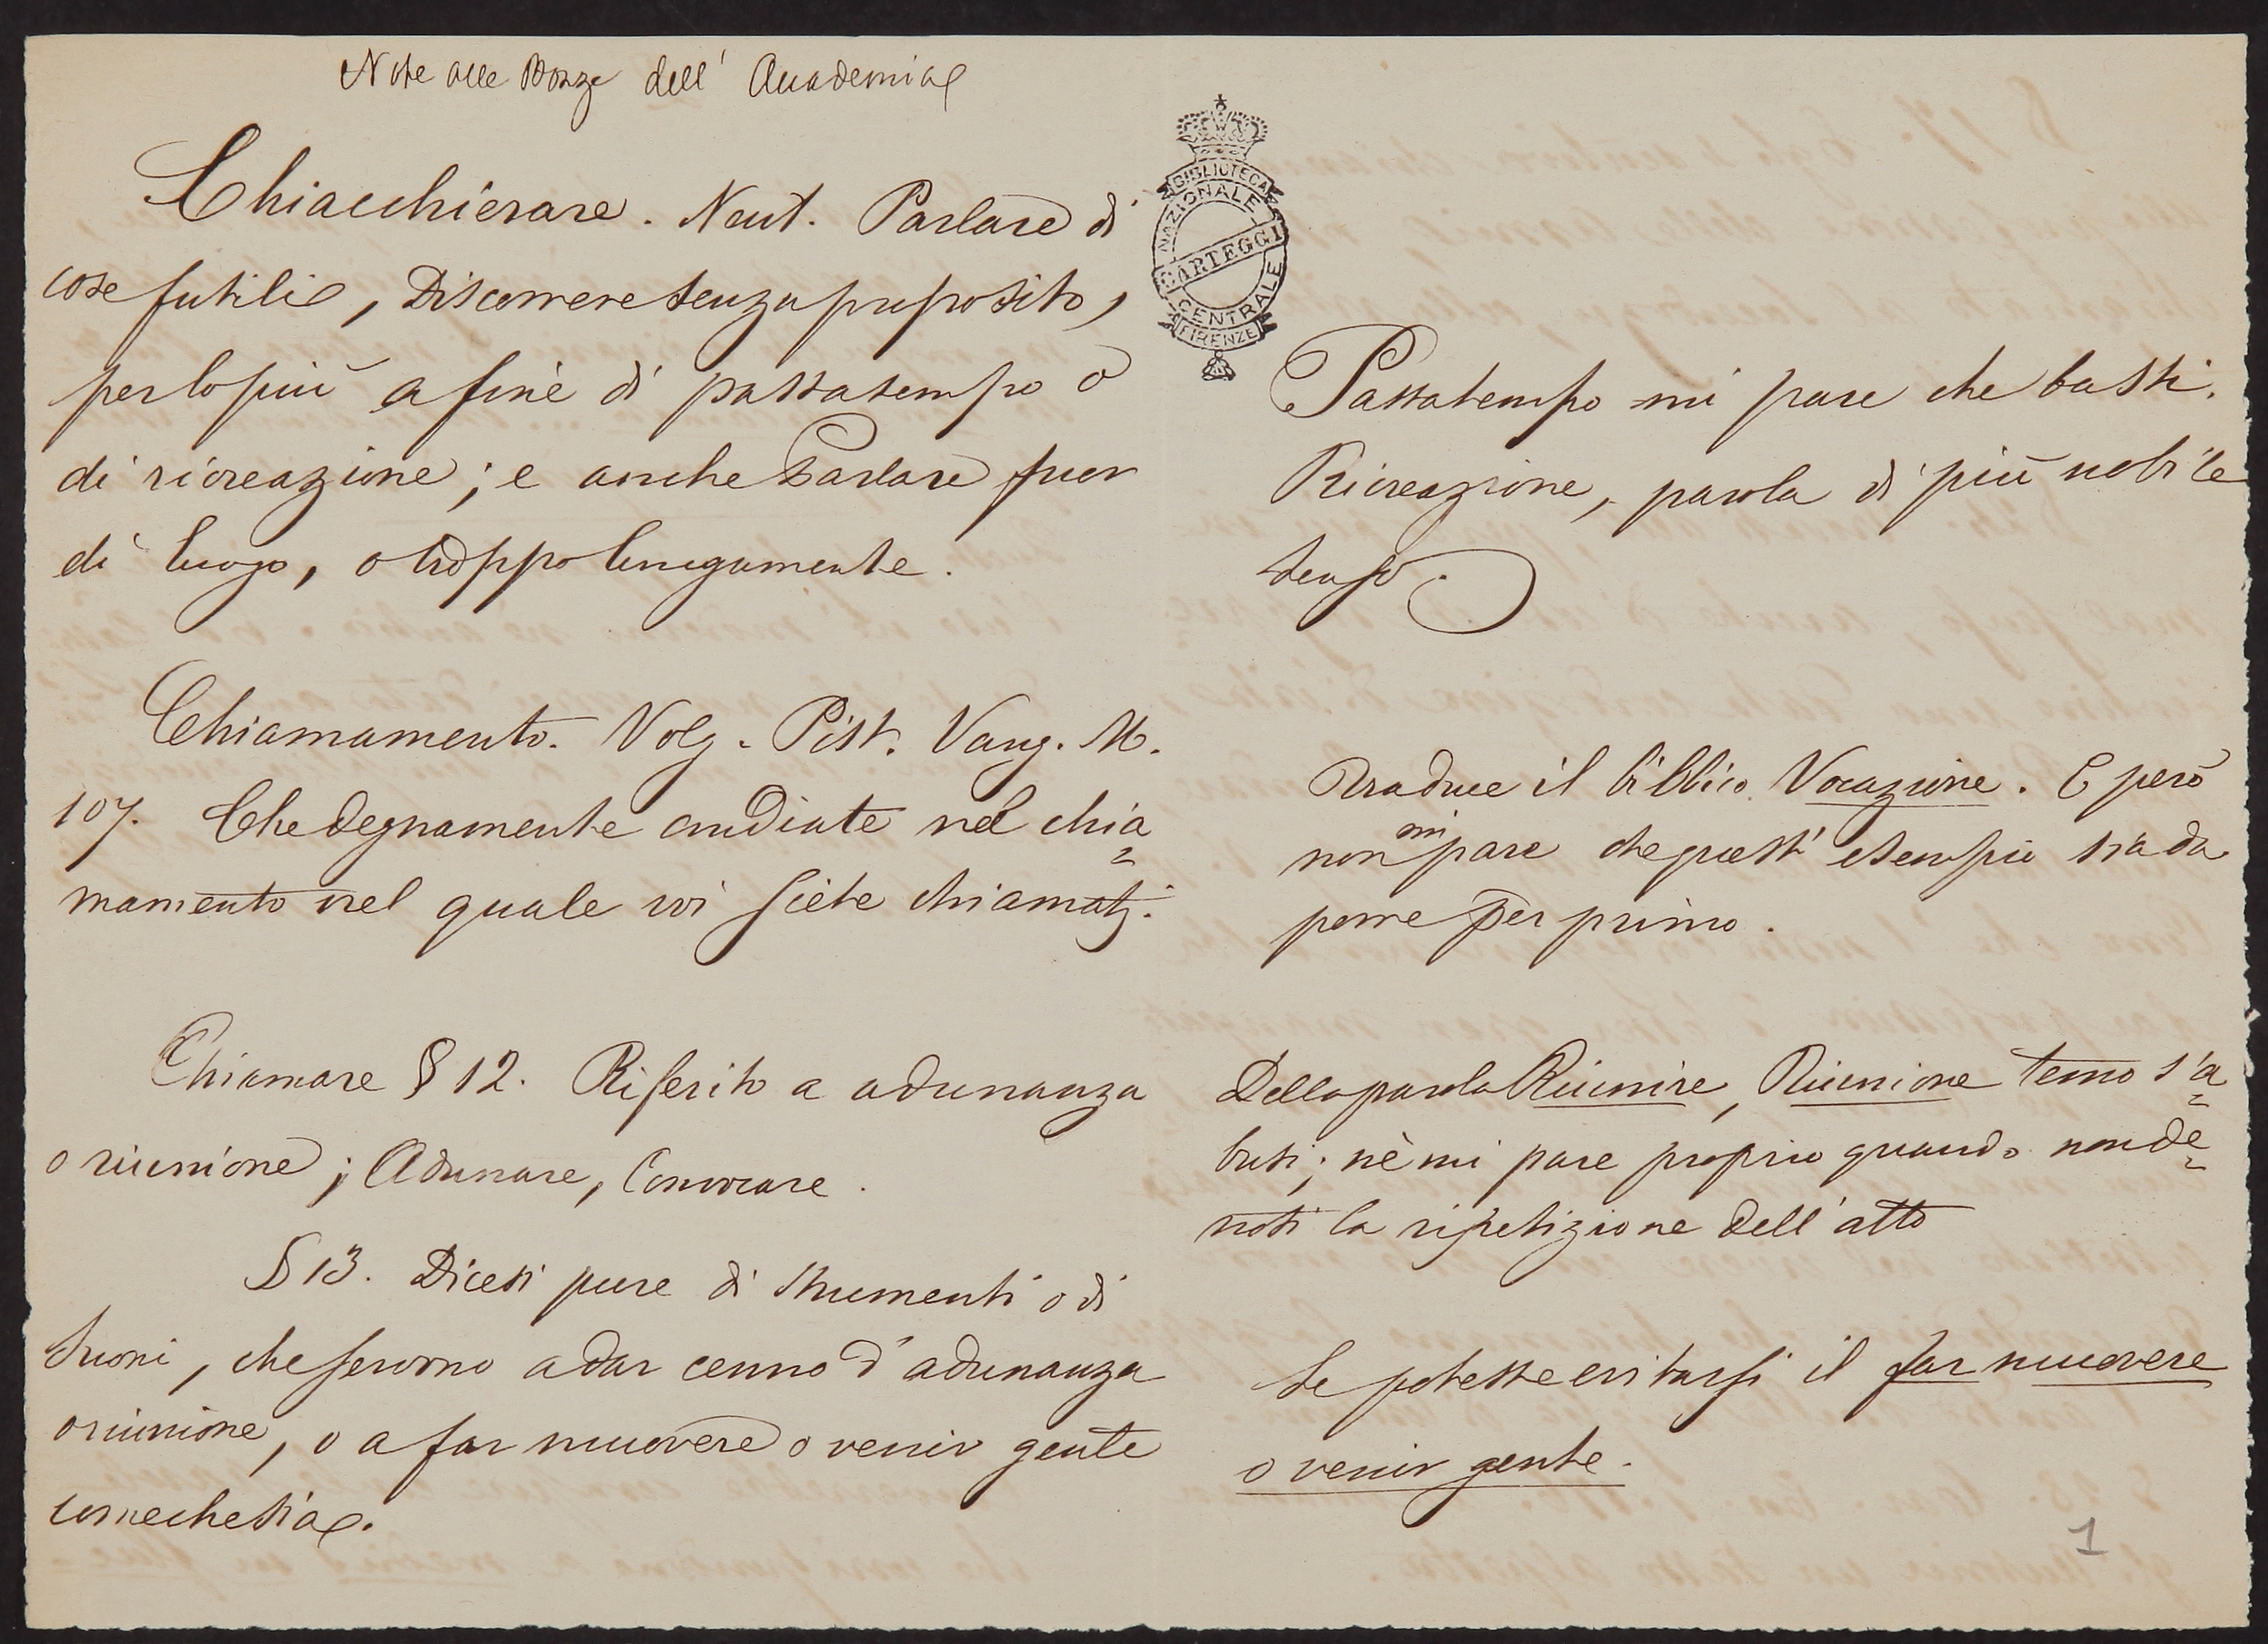 Note alle Bozze dell' Accademia
Chiacchierare. Neut. Parlare di
cose futili, Discorrere senza proposito,
per lo più a fine di passatempo o
di ricreazione; e anche Parlare fuor
di luogo, o troppo lungamente.
Chiamamento. Volg. Pist. Vang. M.
107. Che degnamente andiate nel chia=
mamento nel quale voi siete chiamati.
Chiamare § 12. Riferito a adunanza
o riunione; Adunare, Convocare.
§ 13. Dicesi pure di strumenti o di
suoni, che servono a dar cenno d'adunanza
o riunione, o a far muovere o venir gente
comechesia.
BIBLIOTECA
NAZIONALE
CARTEGGI
CENTRALE
FIRENZE
Passatempo mi pare che basti.
Ricreazione, parola di più nobile
senso.
Traduce il biblico Vocazione. E però
non mi pare che quest' esempio sia da
porre per primo.
Della parola Riunire, Riunione temo s'a=
busi; nè mi pare proprio quando non de=
noti la ripetizione dell'atto
Se potesse evitarsi il far muovere
o venir gente.
1